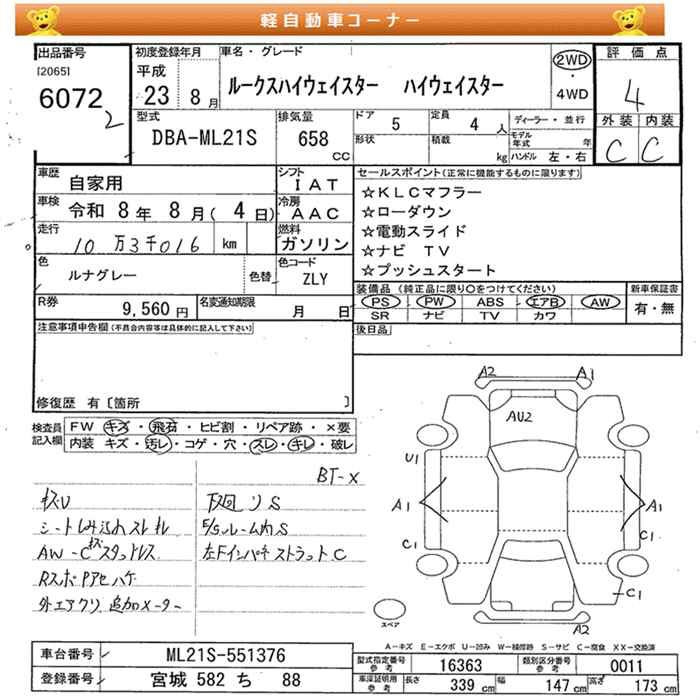 軽自動車コーナー
出品番号
[2065]
6072
2
初度登録年月
平成
23 8月
車名・グレード
ルークスハイウェイスター ハイウェイスター
2WD
・
4WD
評価点
4
外装 内装
C C
型式
DBA-ML21S
排気量
658
CC
ドア
5
定員
4 人
形状
積載
kg
ディーラー・並行
モデル年式 年
ハンドル 左・右
車歴
自家用
シフト
IAT
車検
令和 8年 8月( 4日)
冷房
AAC
走行
10万3千016 km
燃料
ガソリン
色
ルナグレー
色替
色コード
ZLY
R券
9,560円
名変通知期限
月 日
セールスポイント(正常に機能するものに限ります)
☆KLCマフラー
☆ローダウン
☆電動スライド
☆ナビ TV
☆プッシュスタート
装備品(純正品に限り○をつけてください)
PS PW ABS エアB AW
SR ナビ TV カワ
新車保証書
有・無
後日品
注意事項申告欄(不具合内容等は具体的に記入して下さい)
修復歴 有〔箇所 〕
検査員記入欄
FW キズ・飛石・ヒビ割・リペア跡・×要
内装 キズ・汚レ・コゲ・穴・スレ・キレ・破レ
BT-X
キズU
シートしみ込みスレキレ
AW-Cキズスタッドレス
外エアクリ 追加メーター
下廻りS
F/Sルーム内S
左Fインパネストラット C
A2
A1
AU2
U1
A1
A1
C1
C1
C1
A2
スペア
A-キズ E-エクボ U-凹み W-補修跡 S-サビ C-腐食 XX-交換済
車台番号
ML21S-551376
登録番号
宮城 582 ち 88
型式指定番号
参考
16363
類別区分番号
参考
0011
車庫証明用
参考
長さ
339 cm
幅
147 cm
高さ
173 cm